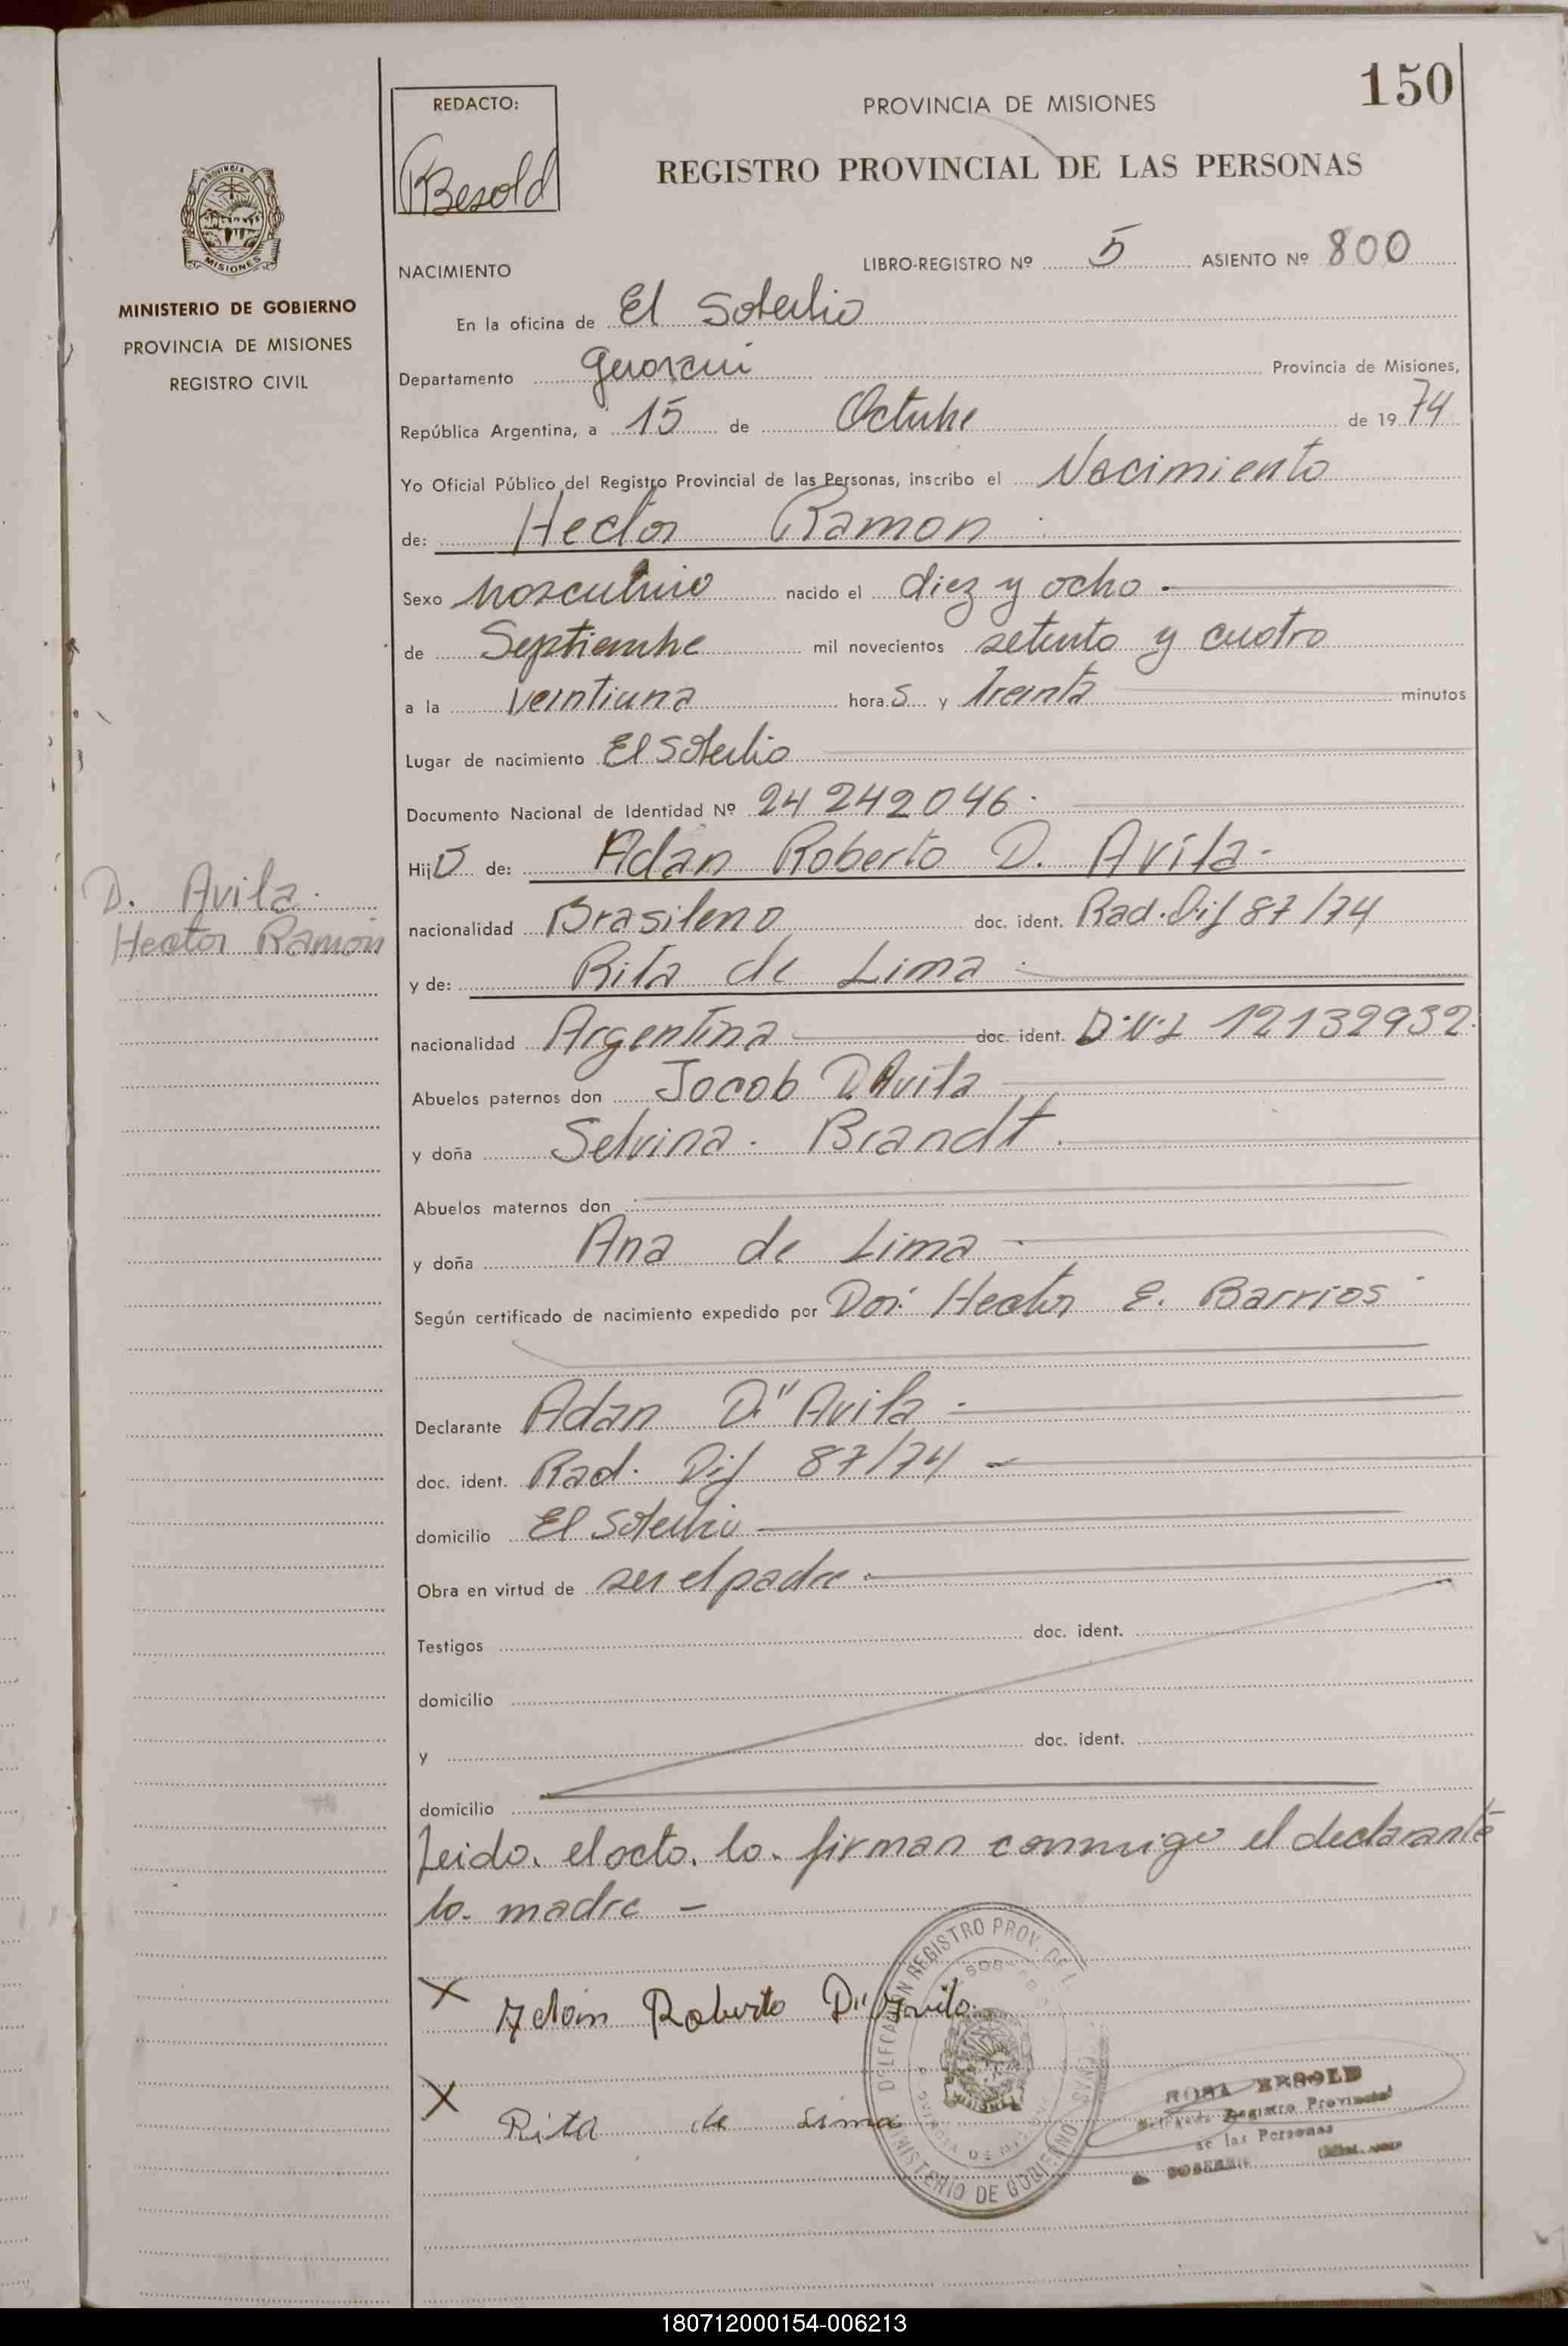 150
REDACTO:
RBesold
PROVINCIA DE MISIONES
REGISTRO PROVINCIAL DE LAS PERSONAS
PROVINCIA DE
MISIONES
MINISTERIO DE GOBIERNO
PROVINCIA DE MISIONES
REGISTRO CIVIL
NACIMIENTO
LIBRO-REGISTRO Nº 5 ASIENTO Nº 800
En la oficina de El Soberbio
Departamento Guarani Provincia de Misiones,
República Argentina, a 15 de Octubre de 19 74
Yo Oficial Público del Registro Provincial de las Personas, inscribo el Nacimiento
de: Hector Ramon
Sexo Masculino nacido el diez y ocho
de Septiembre mil novecientos setenta y cuatro
a la veintiuna hora s y Treinta minutos
Lugar de nacimiento El Soberbio
Documento Nacional de Identidad Nº 24 242 046
Hij o de: Adan Roberto D. Avila
nacionalidad Brasileno doc. ident. Rad. Dif 87/74
D. Avila
Hector Ramon
y de: Rita de Lima
nacionalidad Argentina doc. ident. D.N.I 12132932
Abuelos paternos don Jocob D'Avila
y doña Selvina Brandt
Abuelos maternos don
y doña Ana de Lima
Según certificado de nacimiento expedido por Dor. Hector E. Barrios
Declarante Adan D" Avila
doc. ident. Rad. Dif 87/74
domicilio El Soberbio
Obra en virtud de ser el padre
Testigos doc. ident.
domicilio
y doc. ident.
domicilio
Leido el acto lo firman conmigo el declarante
la madre
X Adan Roberto D" Avila
X Rita de Lima
DELEGACION REGISTRO PROV. DE L
MINISTERIO DE GOBIERNO
ROSA BESOLD
Delegada Registro Provincial
de las Personas
180712000154-006213